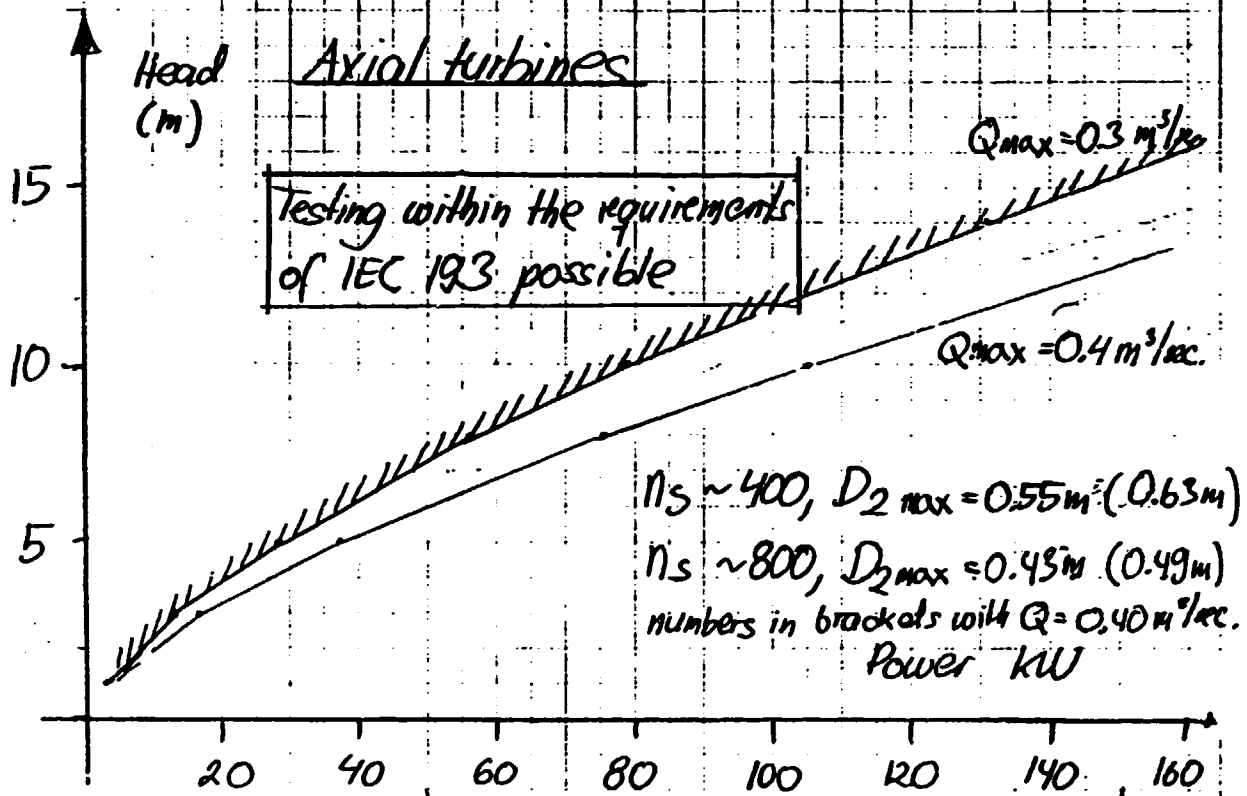 Head
(m)
Axial turbines
Qmax = 0.3 m³/sec
15
Testing within the requirements
of IEC 193 possible
10
Qmax = 0.4 m³/sec.
ns ~ 400, D2 max = 0.55m (0.63m)
5
ns ~ 800, D2max = 0.43m (0.49m)
numbers in brackets with Q = 0,40 m³/sec.
Power kW
20 40 60 80 100 120 140 160